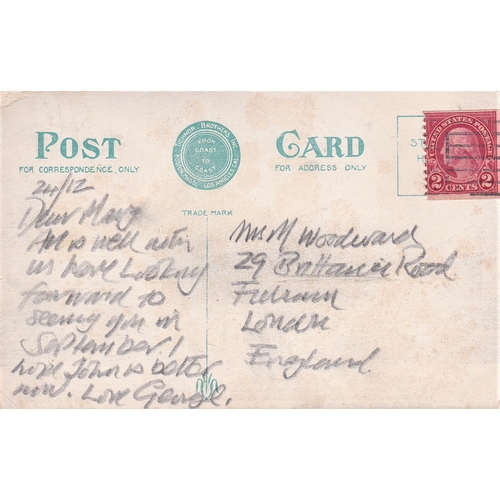 POST CARD
FOR CORRESPONDENCE ONLY
FOR ADDRESS ONLY
COAST TO COAST
TRADE MARK
UNITED STATES POSTAGE
2 CENTS 2
24/12
Dear Mary
All is well with
us here Looking
forward to
seeing you in
September I
hope John is better
now. Love George.
Mrs M Woodward
29 Brittannia Road
Fulham
London
England